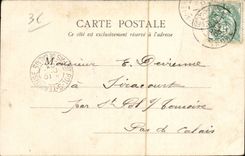 3€
CARTE POSTALE
Ce côté est exclusivement réservé à l'adresse
Monsieur E. Devienne
à Siracourt
par St Pol Ternoise
Pas de Calais